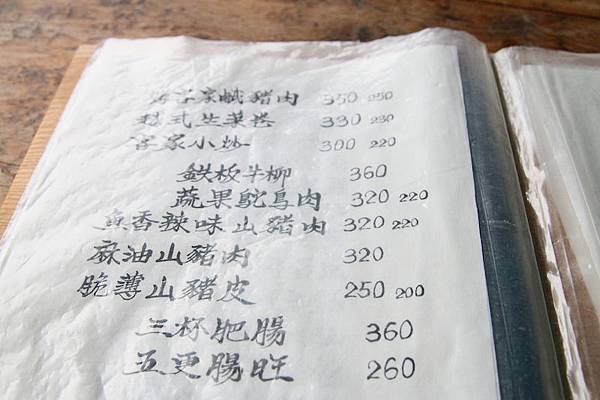 客家鹹豬肉 350 250
式生菜卷 330 230
客家小炒 300 220
鉄板牛柳 360
蔬果鴕鳥肉 320 220
魚香辣味山豬肉 320 220
麻油山豬肉 320
脆薄山豬皮 250 200
三杯肥腸 360
五更腸旺 260